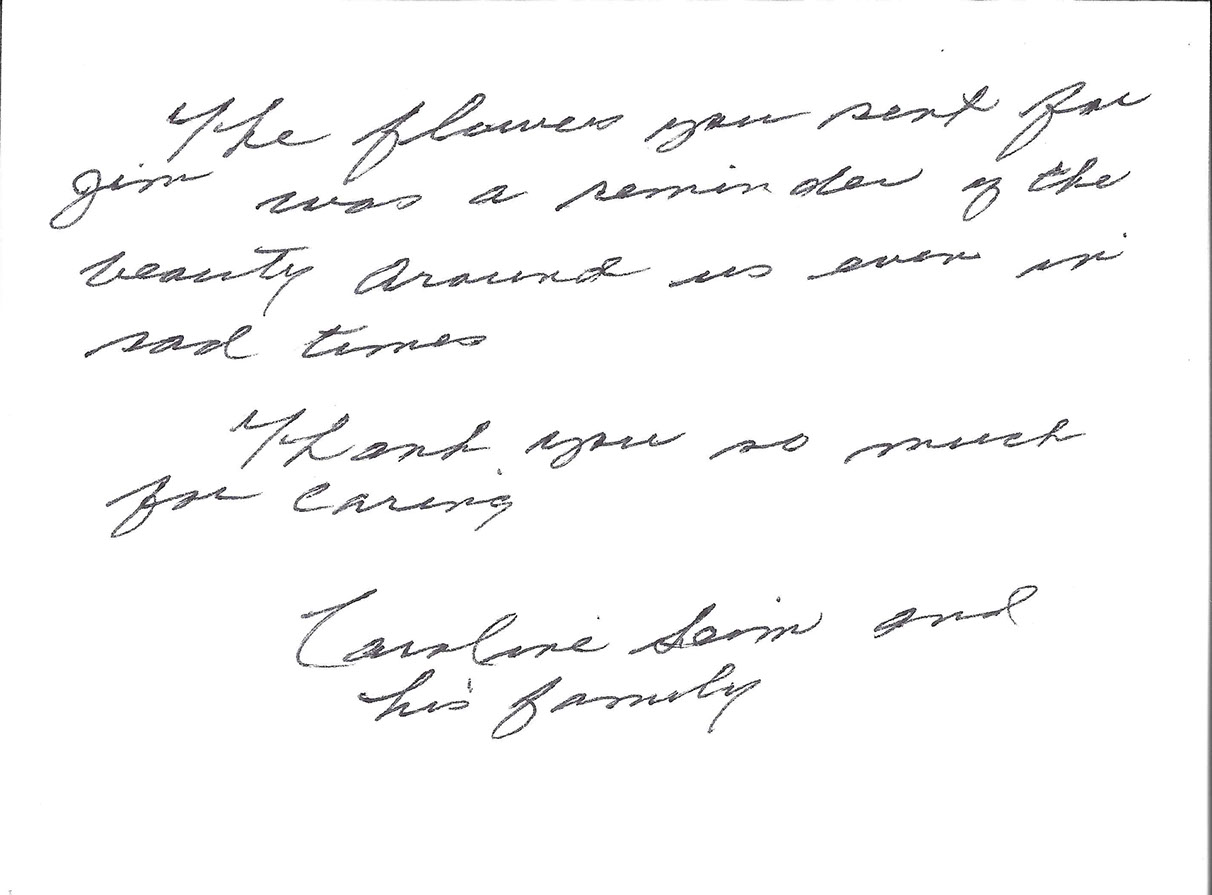 The flowers you sent for
Jim was a reminder of the
beauty around us even in
sad times
Thank you so much
for caring
Caroline Seim and
his family